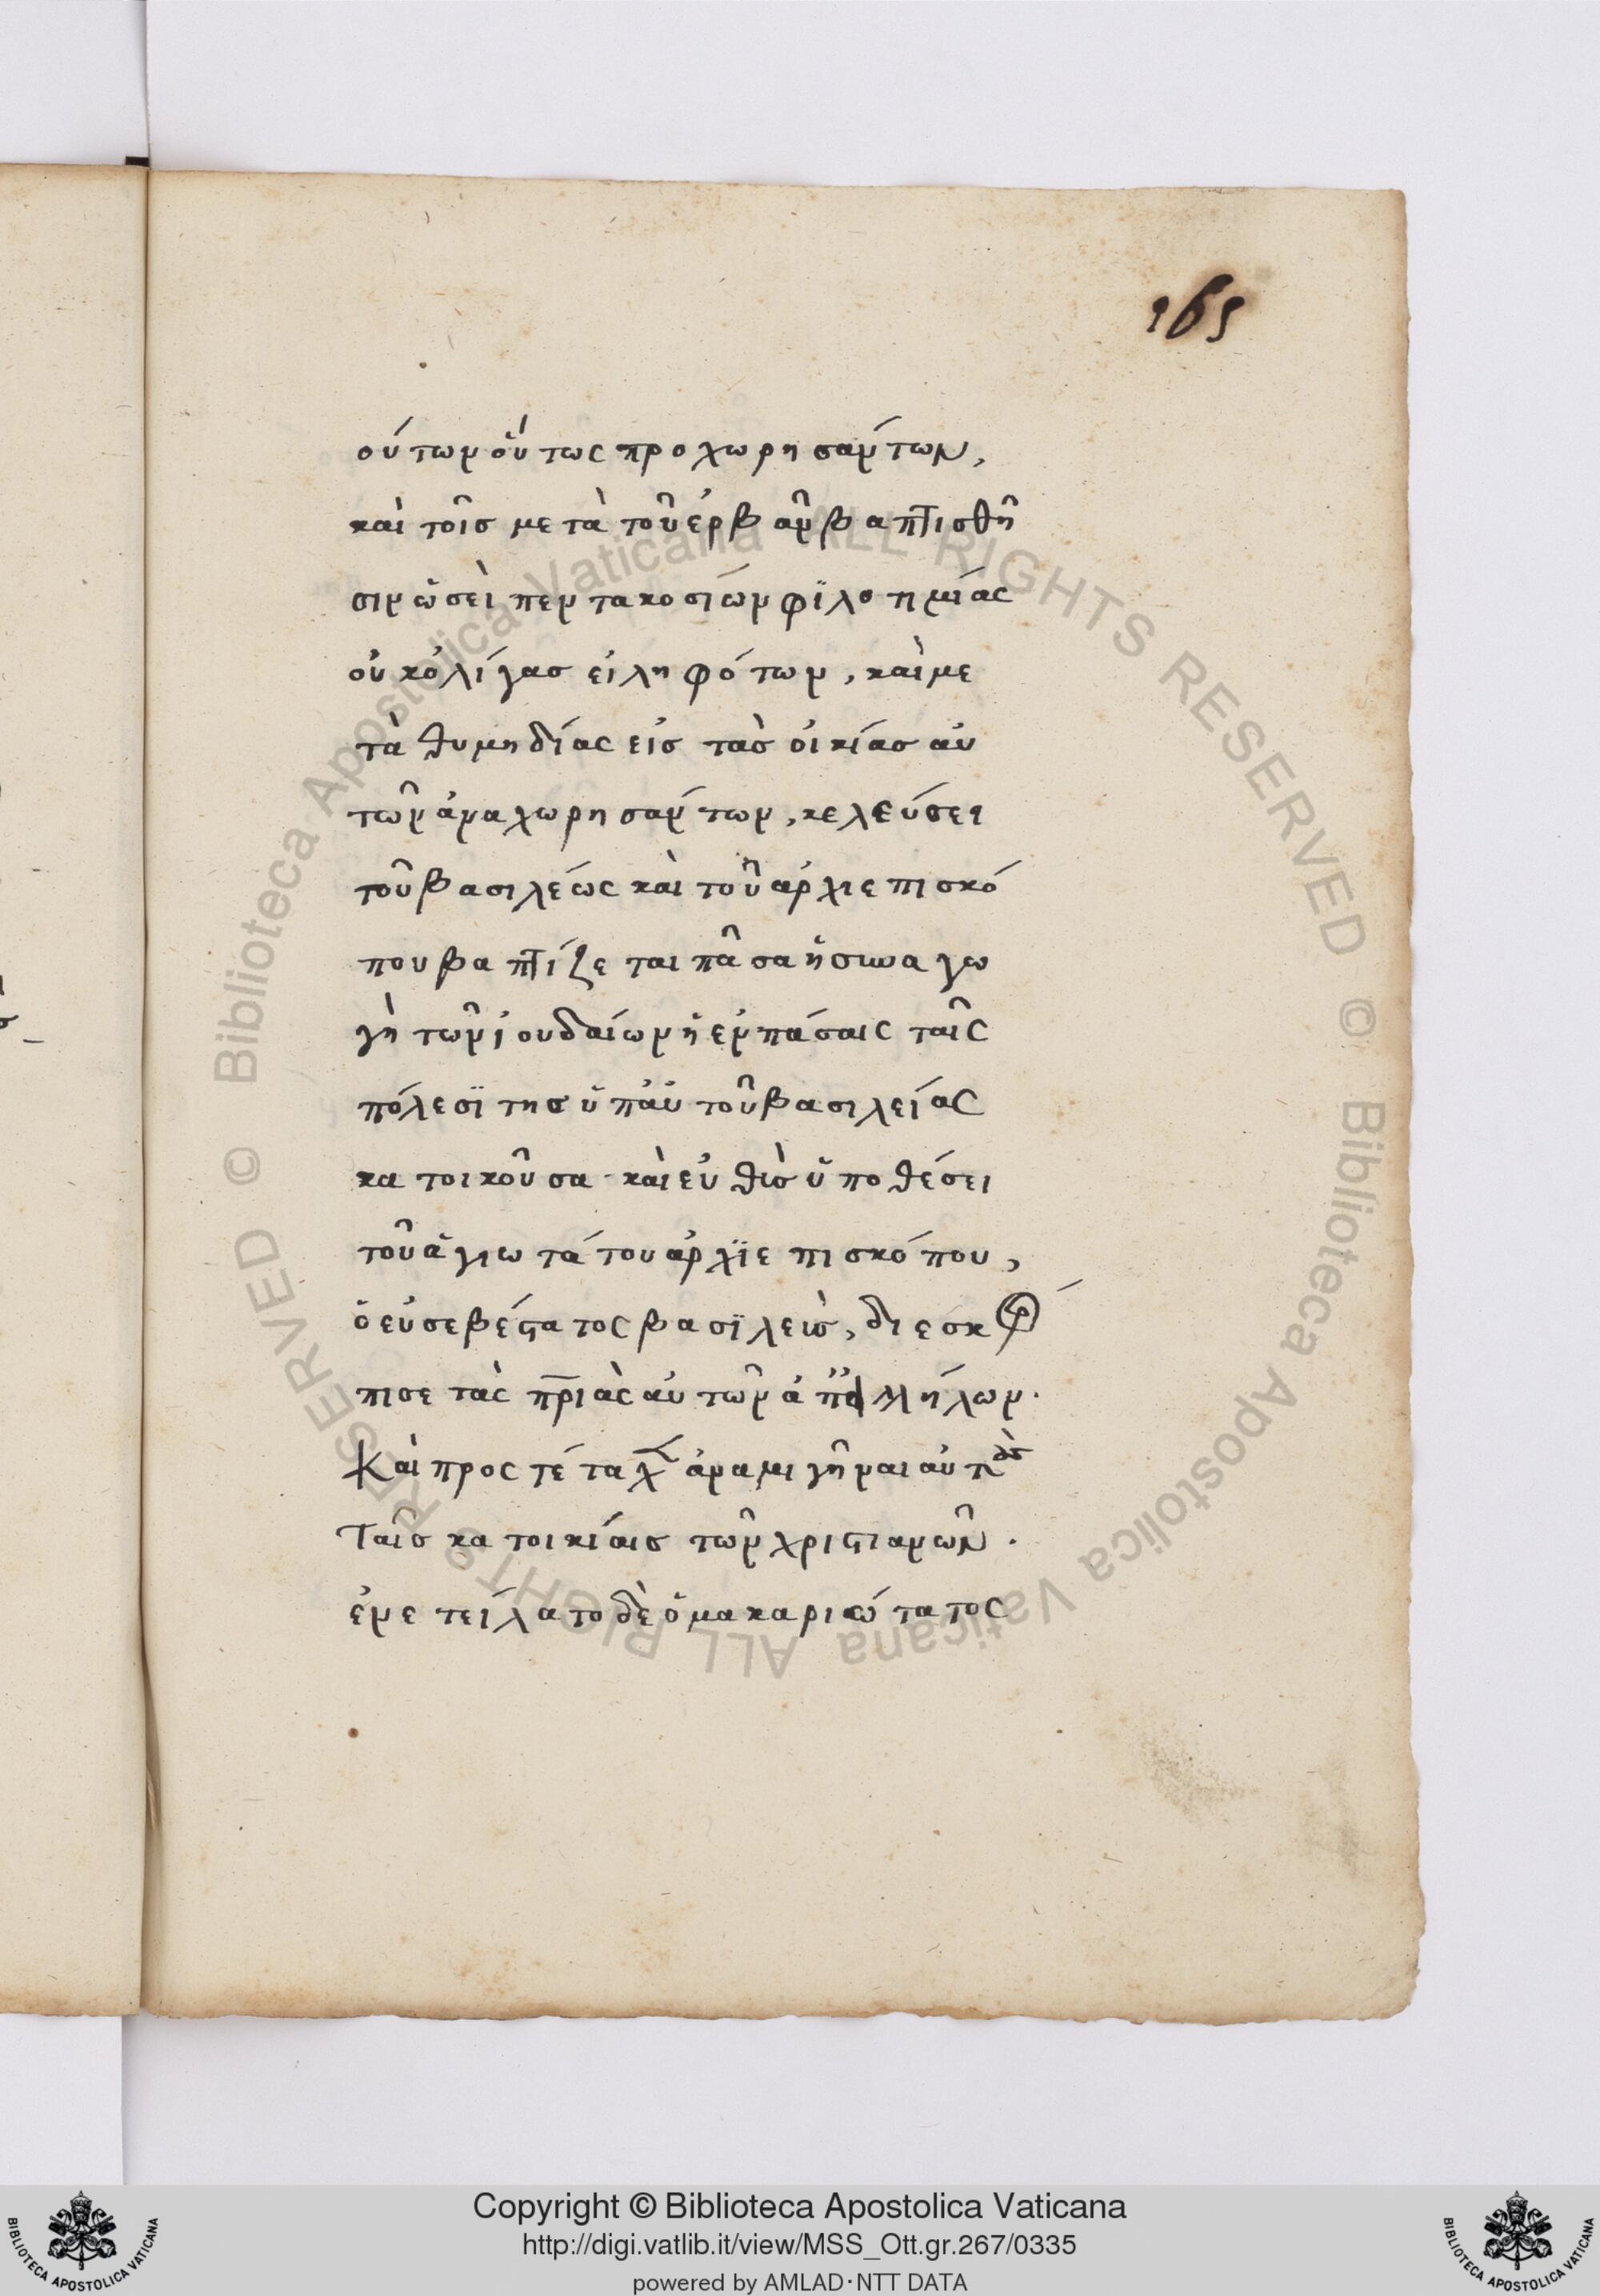 165
ούτων οὕτως προχωρησάντων,
καὶ τοῖς μετὰ τοῦ ἑρβὰν βαπτισθῆ
σιν ὡσεὶ πεντακοσίων φϊλοτημίας
οὐκ ὀλίγας εἰληφότων, καὶ με
τὰ θυμηδίας εἰς τὰς οἰκίας αὐ
τῶν ἀναχωρησάντων, κελεύσει
τοῦ βασιλέως καὶ τοῦ ἀρχιεπισκό
που βαπτίζεται πᾶσα ἡ συναγω
γὴ τῶν ἰουδαίων ἡ ἐν πάσαις ταῖς
πόλεσϊ της ὑπ' αὐτοῦ βασιλείας
κατοικοῦσα· καὶ εὐθὺς ὑποθέσει
τοῦ ἁγιωτάτου ἀρχϊεπισκόπου,
ὁ εὐσεβέστατος βασϊλεὺς, διεσκόρ
πισε τὰς πριὰς αὐτῶν ἀπ' ἀλλήλων.
Καὶ προσ τέταχεν ἀναμιγῆναι αὐτοὺς
Ταῖς κατοικίαις τῶν χριστιανῶν.
ἐνετείλατο δὲ ὁ μακαριώτατος
Copyright © Biblioteca Apostolica Vaticana
http://digi.vatlib.it/view/MSS_Ott.gr.267/0335
powered by AMLAD·NTT DATA